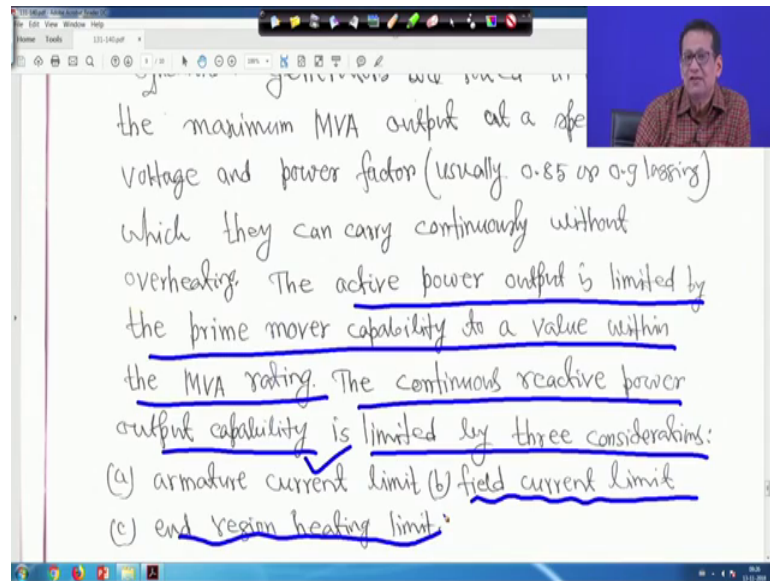 131-140.pdf - Adobe Acrobat Reader DC
File Edit View Window Help
Home Tools 131-140.pdf ×
generators are rated in
the maximum MVA output at a spe
voltage and power factor (usually 0.85 or 0.9 lagging)
which they can carry continuously without
overheating. The active power output is limited by
the prime mover capability to a value within
the MVA rating. The continuous reactive power
output capability is limited by three considerations:
(a) armature current limit (b) field current limit
(c) end region heating limit.